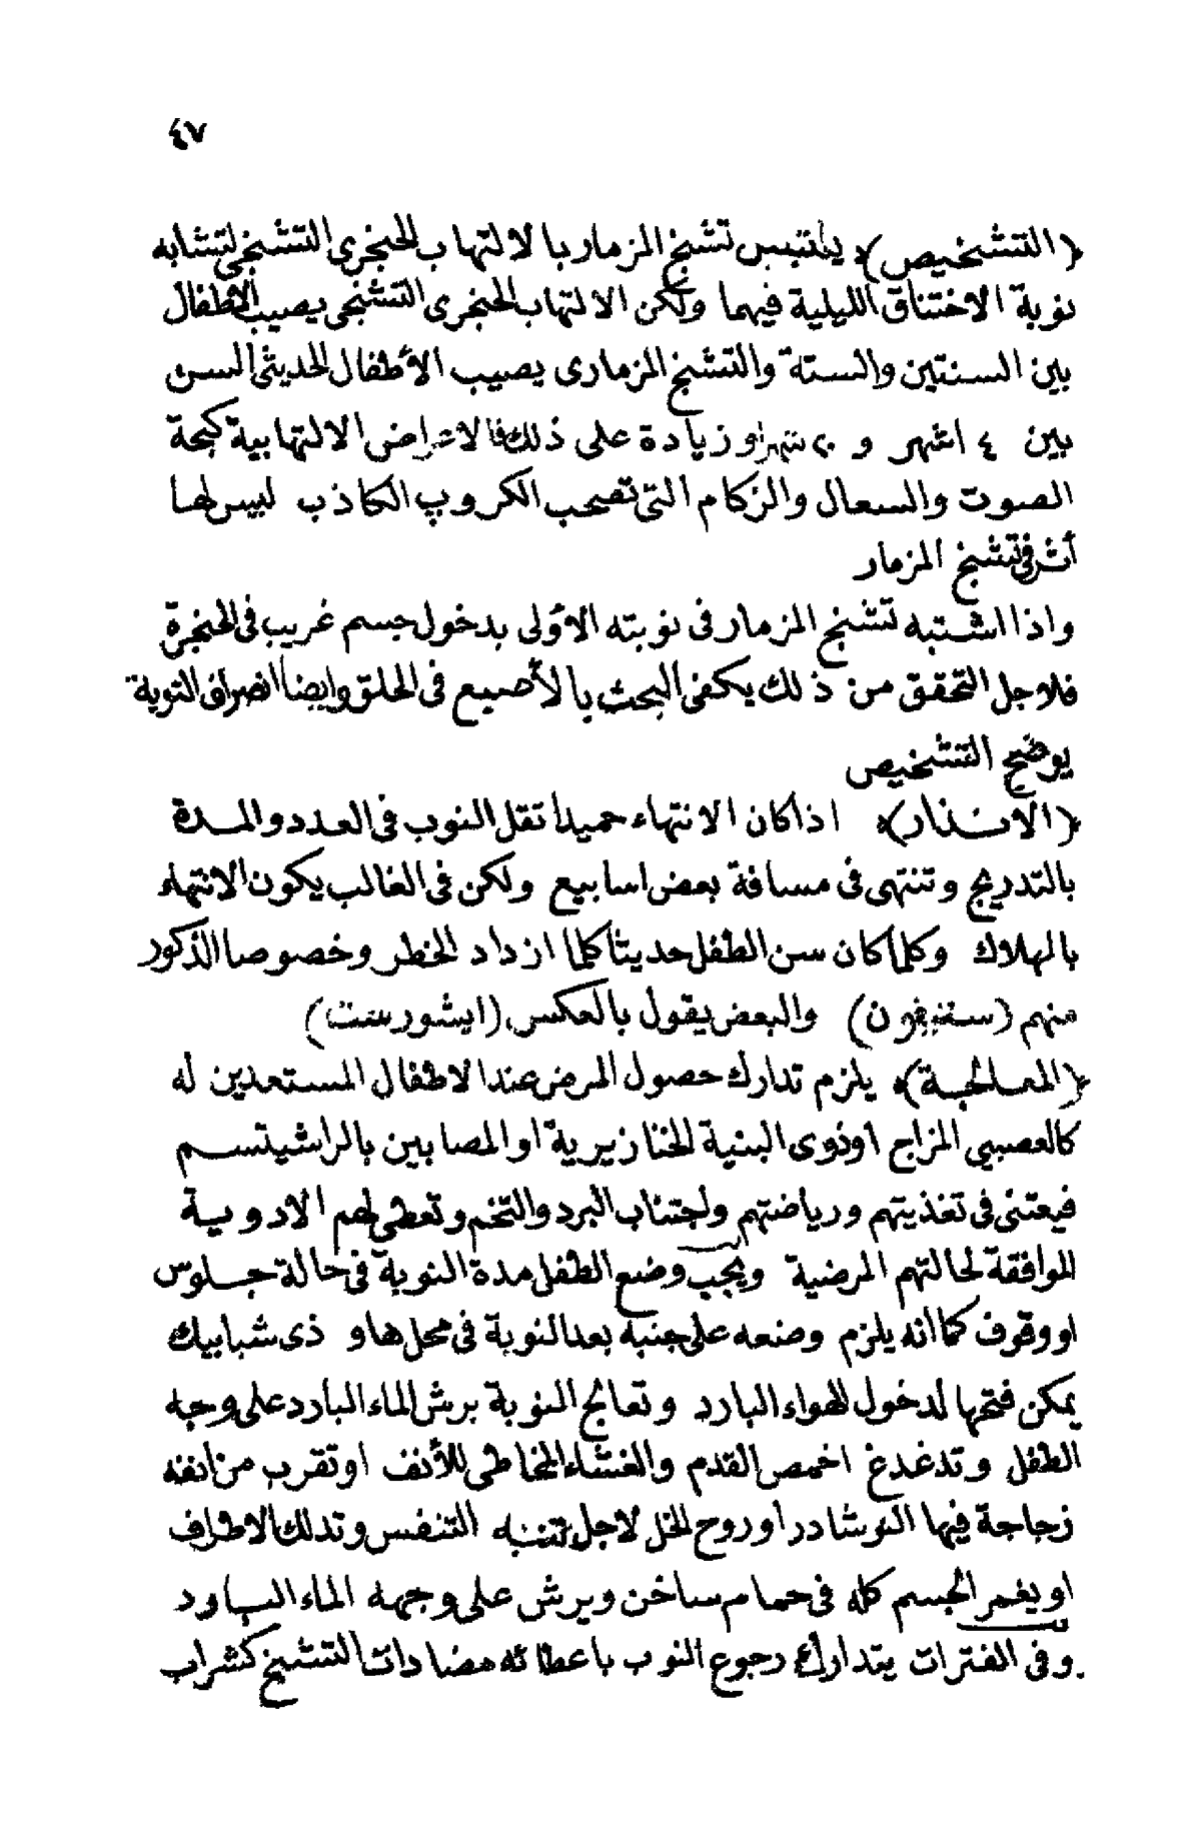 ٤٧
﴿التشخيص﴾ يلتبس تشنج المزمار بالالتهاب الحنجرى التشنجى لتشابه
نوبة الاختناق الليلية فيهما ولكن الالتهاب الحنجرى التشنجى يصيب الاطفال
بين السنتين والستة والتشنج المزمارى يصيب الأطفال الحديثى السن
بين ٤ اشهر و ٢٠ شهرا وزيادة على ذلك فالاعراض الالتهابية كبحة
الصوت والسعال والزكام التى تصحب الكروب الكاذب ليس لها
أثر فى تشنج المزمار
واذا اشتبه تشنج المزمار فى نوبته الأولى بدخول جسم غريب فى الحنجرة
فلاجل التحقق من ذلك يكفى البحث بالأصبع فى الحلق وايضا انصراف النوبة
يوضح التشخيص
﴿الانذار﴾ اذا كان الانتهاء حميدا تقل النوب فى العدد والمدة
بالتدريج وتنتهى فى مسافة بعض اسابيع ولكن فى الغالب يكون الانتهاء
بالهلاك وكلما كان سن الطفل حديثا كلما ازداد الخطر وخصوصا الذكور
منهم (ستفون) والبعض يقول بالعكس (ايشورست)
﴿المعالجة﴾ يلزم تدارك حصول المرض عند الاطفال المستعدين له
كالعصبيى المزاج اوذوى البنية الخنازيرية او المصابين بالراشيتسم
فيعتنى فى تغذيتهم ورياضتهم واجتناب البرد والتخم وتعطى لهم الادوية
الموافقة لحالتهم المرضية ويجب وضع الطفل مدة النوبة فى حالة جلوس
او وقوف كما انه يلزم وضعه على جنبه بعد النوبة فى محل هاو ذى شبابيك
يمكن فتحها لدخول الهواء البارد وتعالج النوبة برش الماء البارد على وجه
الطفل وتدغدغ اخمص القدم والغشاء المخاطى للأنف او تقرب من انفه
زجاجة فيها النوشادر اوروح الخل لاجل تنبه التنفس وتدلك الاطراف
او يغمر الجسم كله فى حمام ساخن ويرش على وجهه الماء البارد
وفى الفترات يتدارك رجوع النوب باعطائه مضادات التشنج كشراب